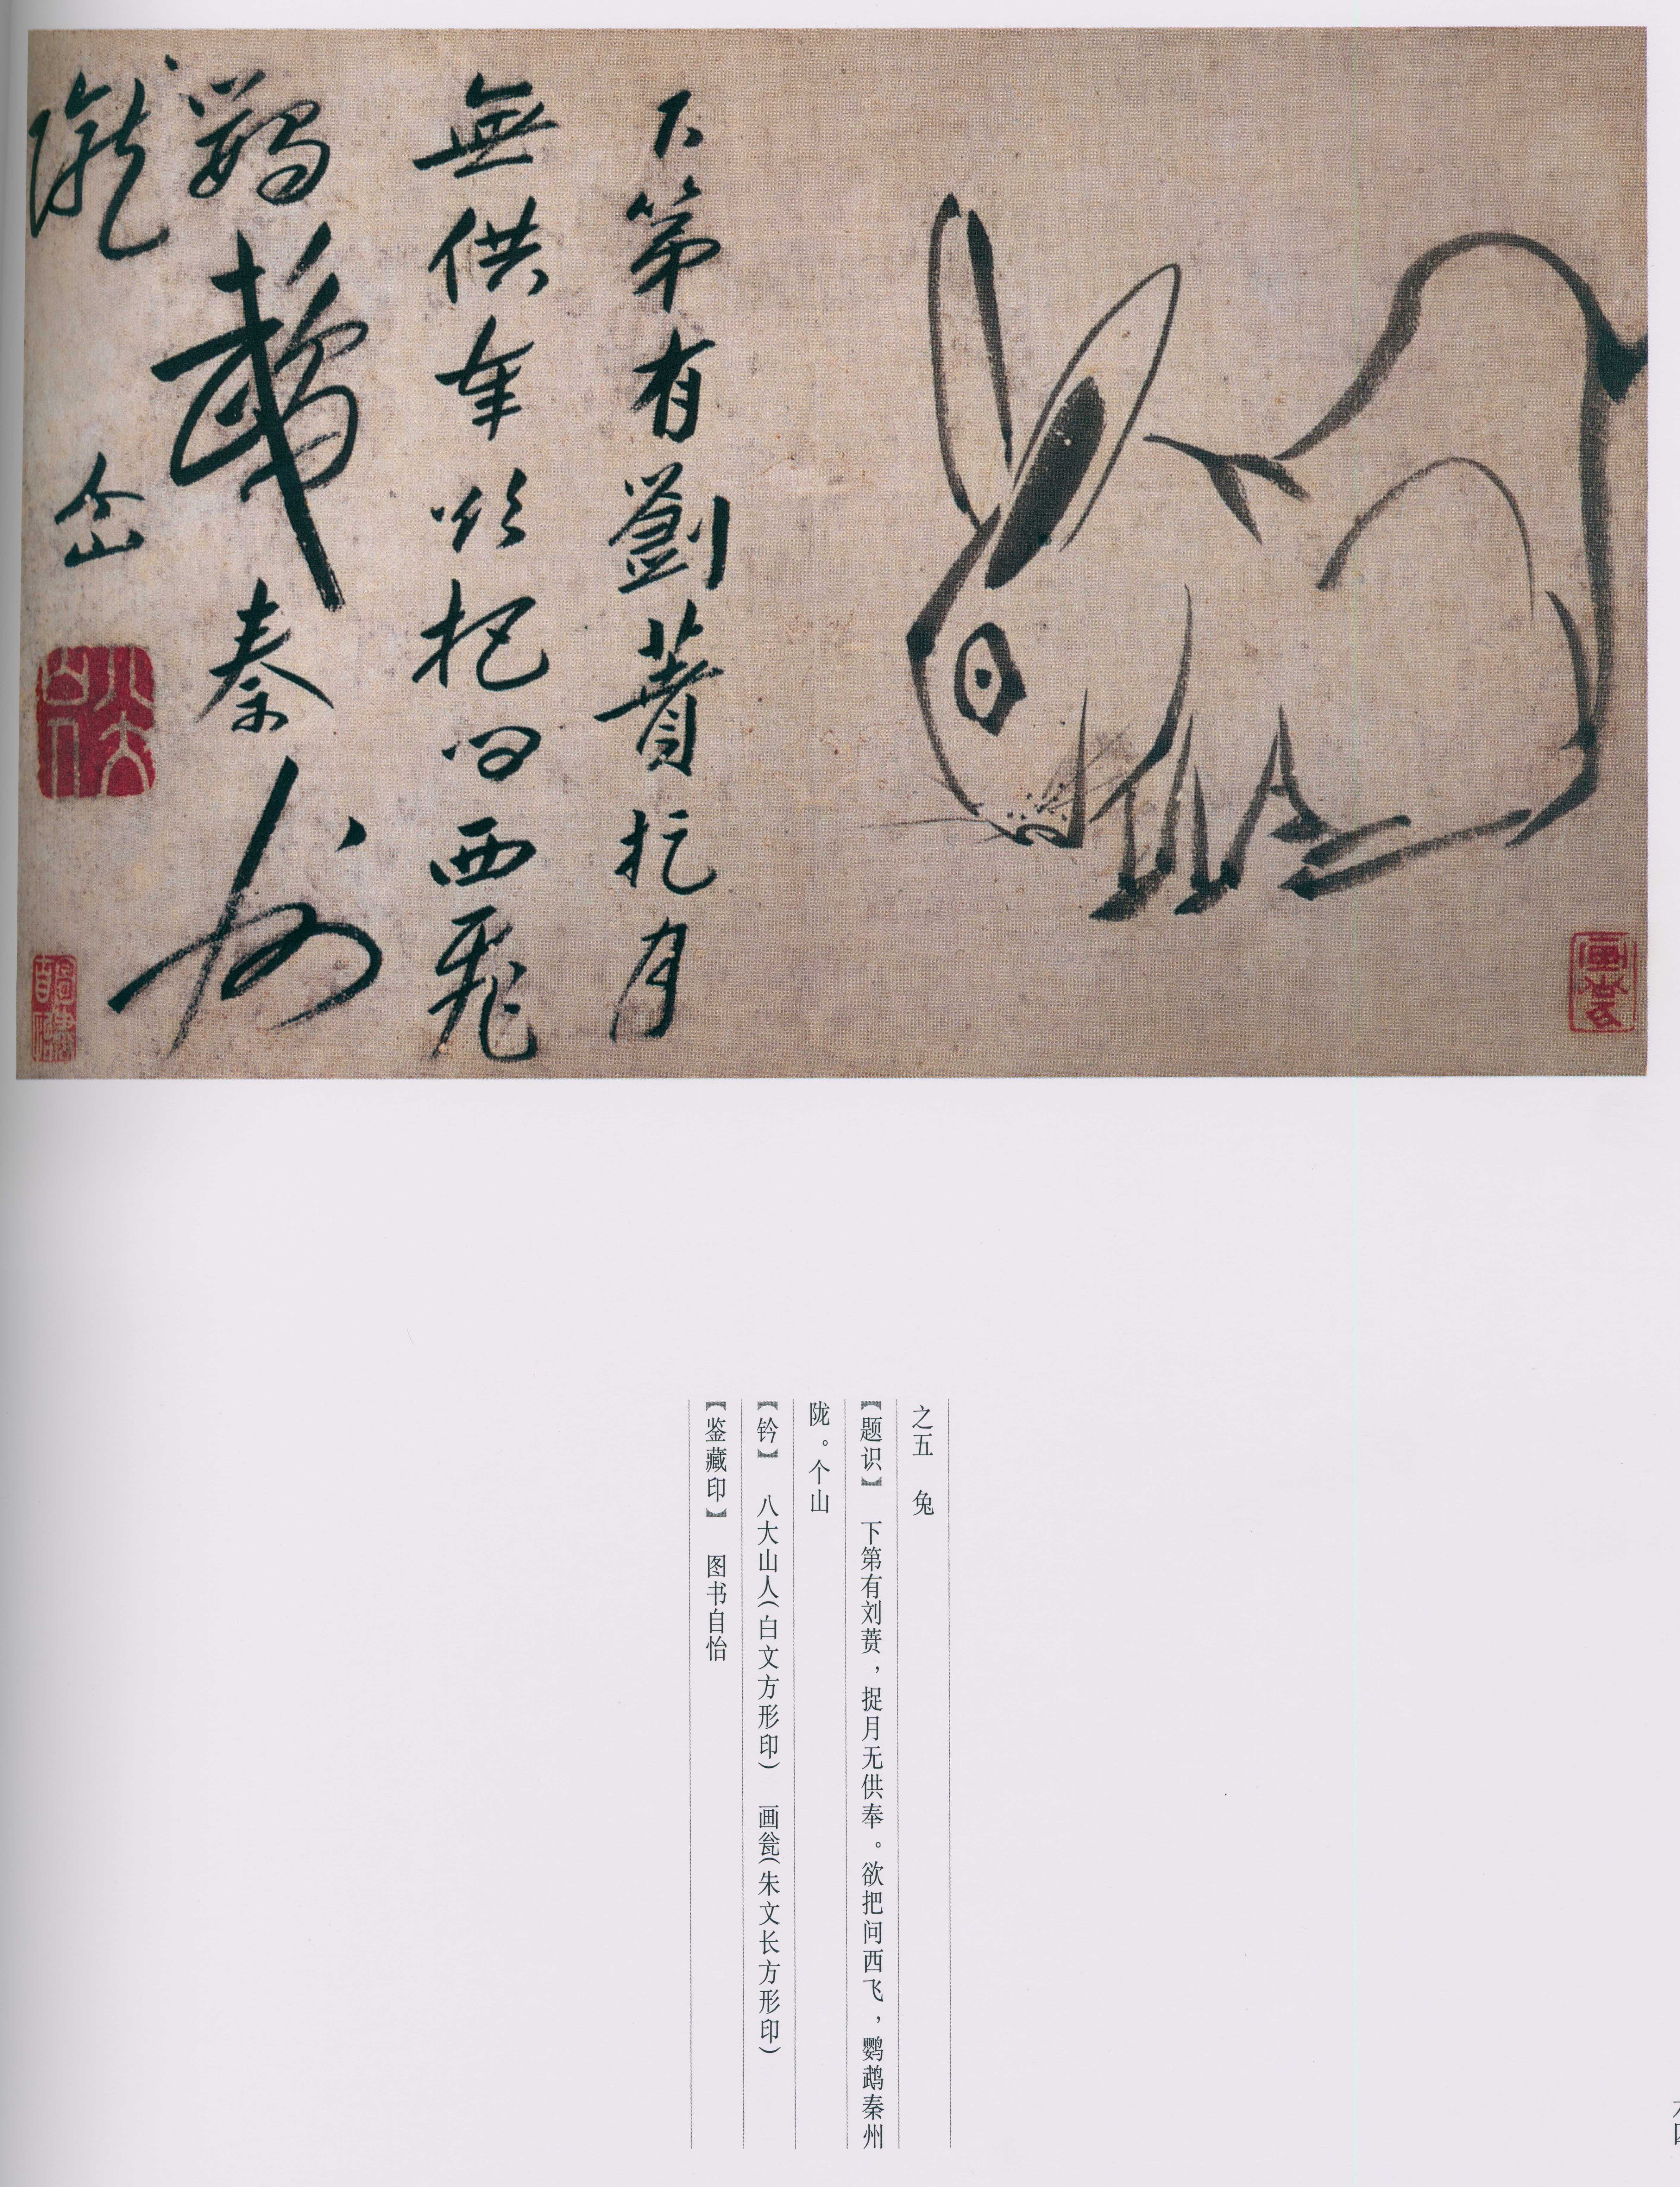 下第有劉蕡捉月
無供奉欲把問西飛
鸚鵡秦州
隴
个山
八大山人
画瓮
图書自怡
之五 兔
【题识】 下第有刘蕡，捉月无供奉。欲把问西飞，鹦鹉秦州
陇。个山
【钤】 八大山人(白文方形印) 画瓮(朱文长方形印)
【鉴藏印】 图书自怡